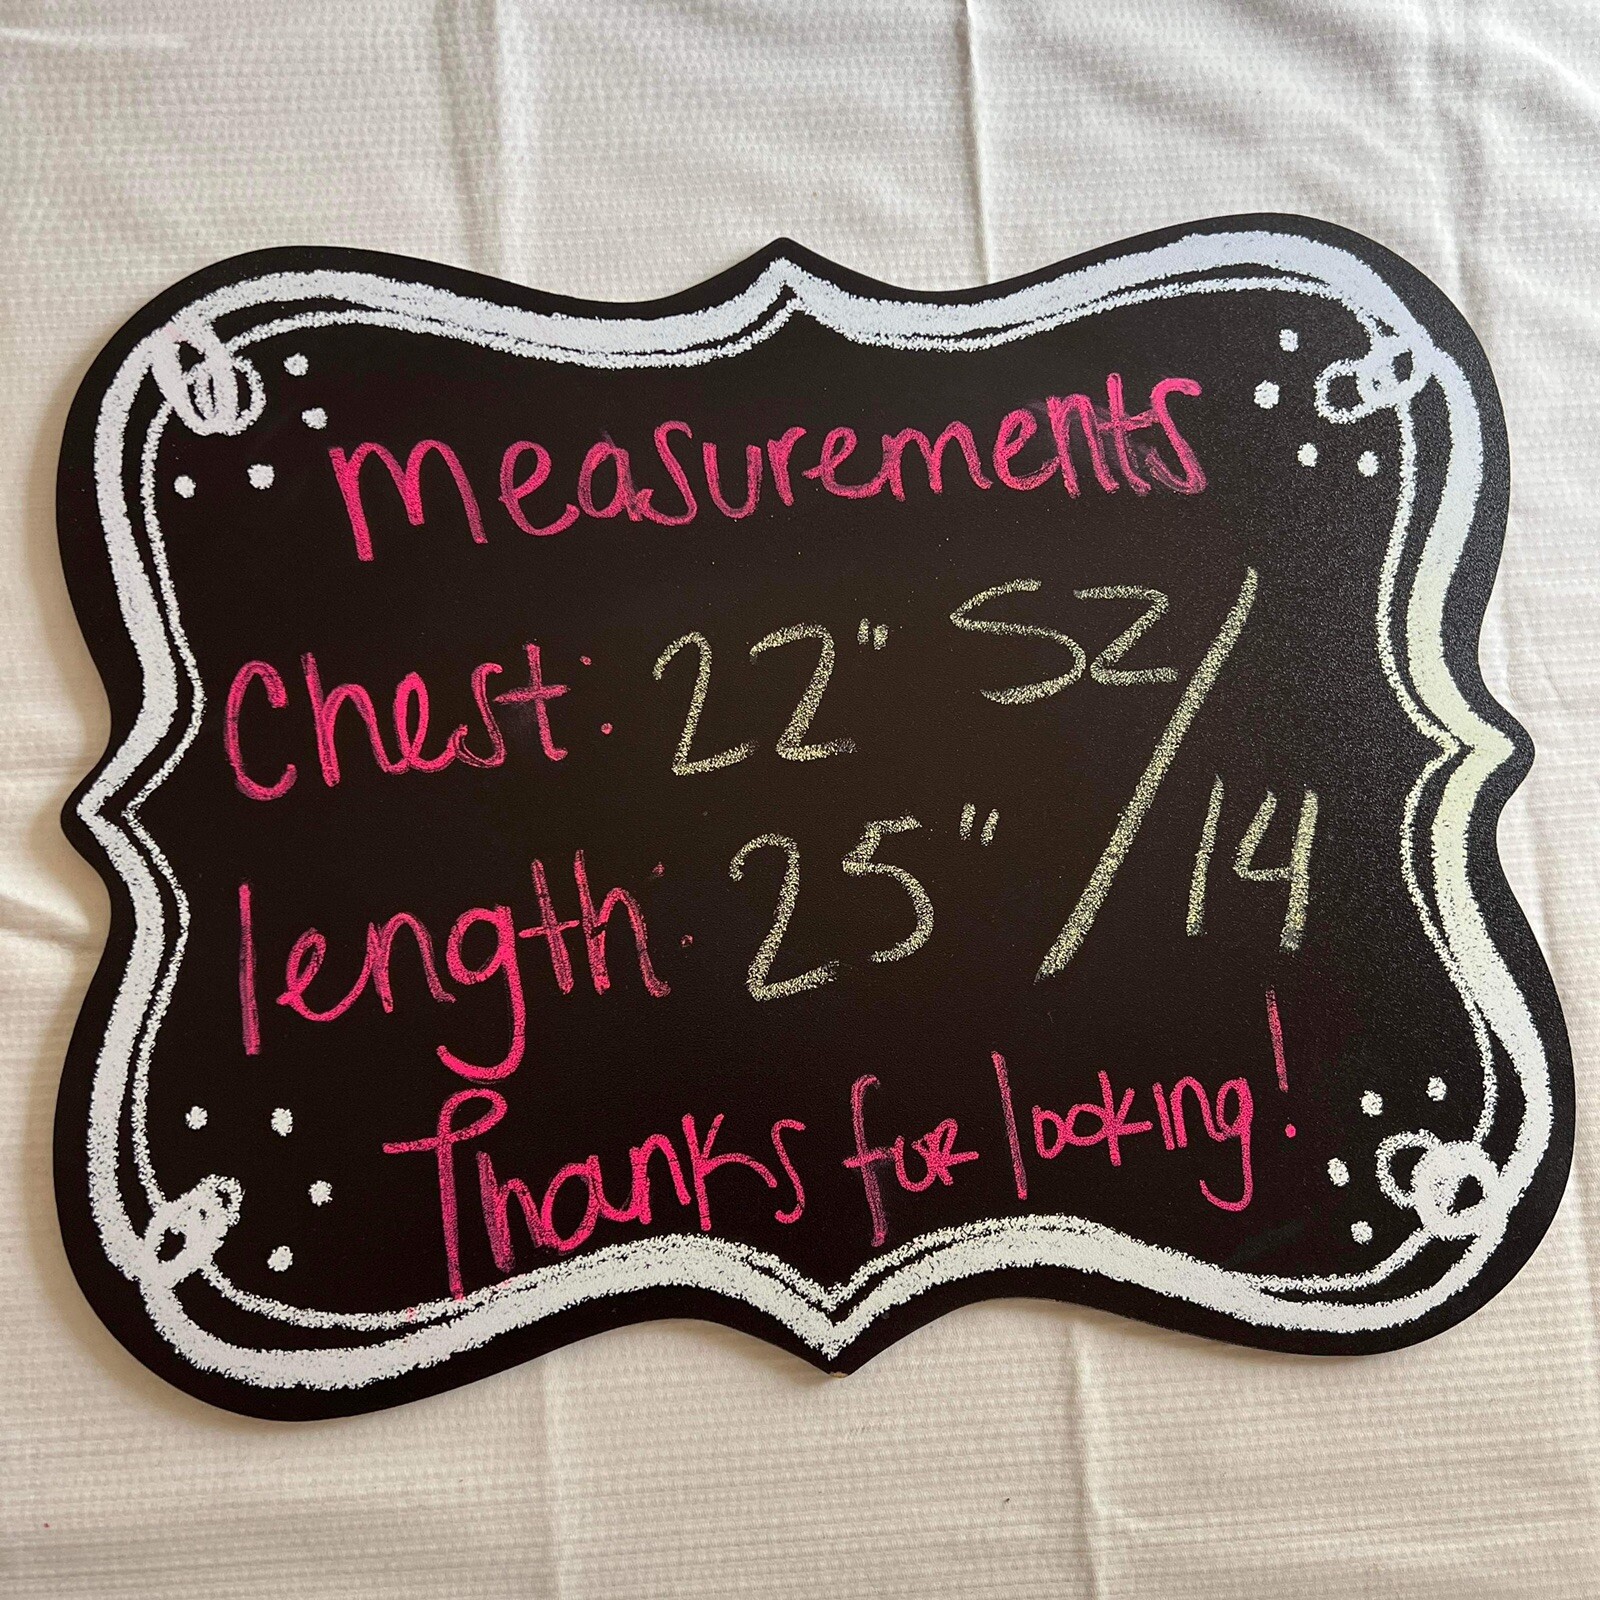 measurements
Chest: 22" SZ/14
length: 25"
Thanks for looking!